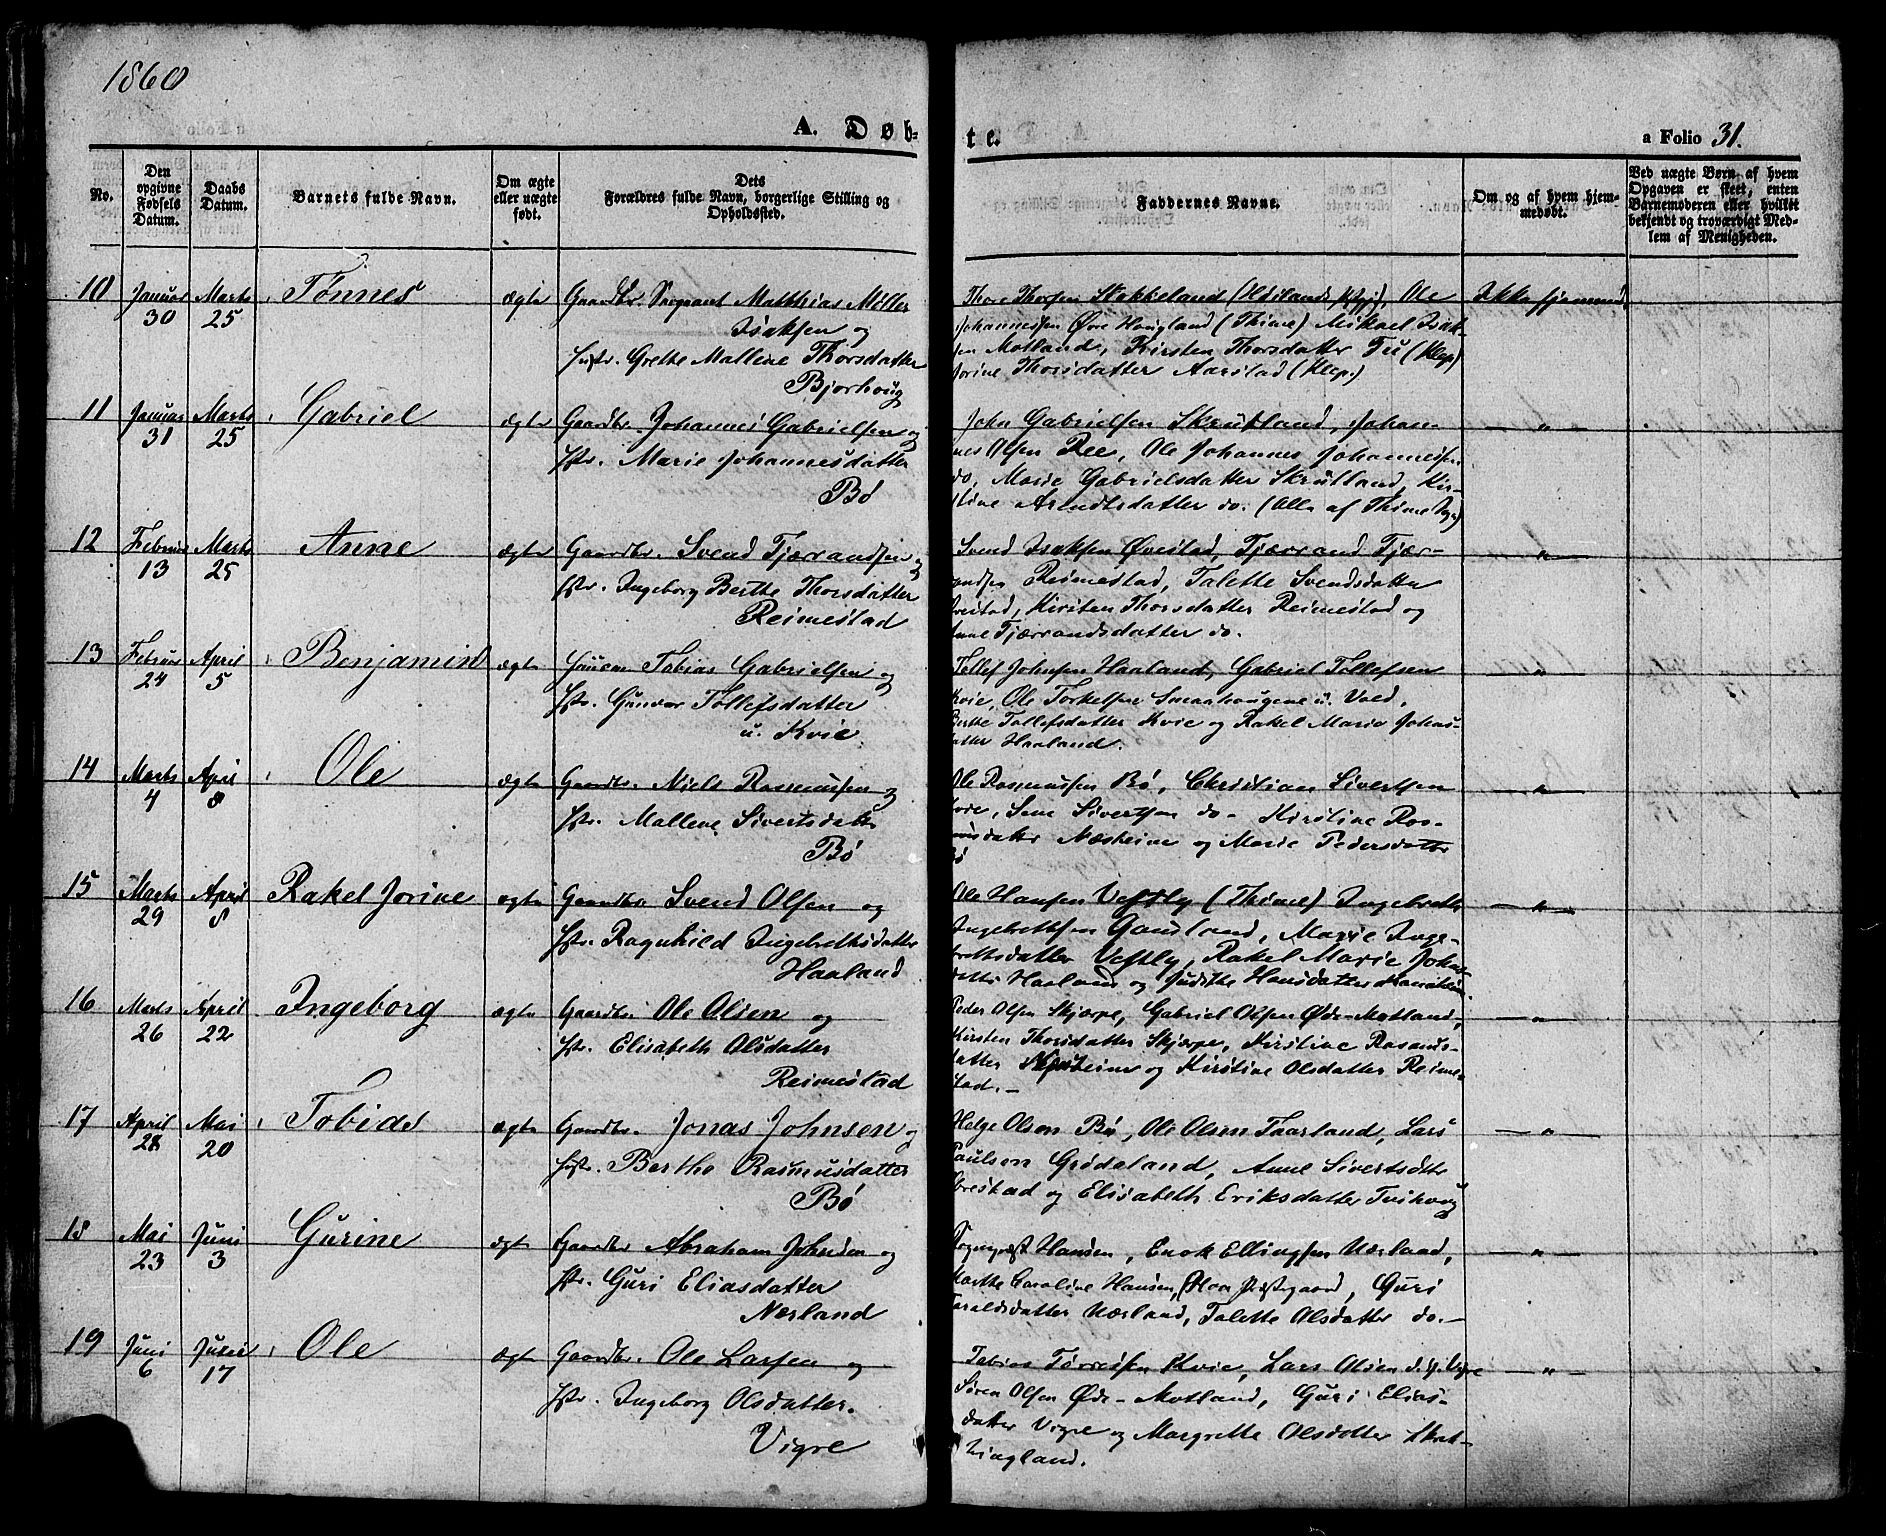 1860
A. Døb-
te.
a Folio 31.
No.
Den opgivne Fødsels Datum.
Daabs Datum.
Barnets fulde Navn.
Om ægte eller uægte født.
Dets Forældres fulde Navn, borgerlige Stilling og Opholdssted.
Faddernes Navne.
Om og af hvem hjemmedøbt.
Ved uægte Børn af hvem Opgaven er skeet, enten Barnemoderen eller hvilket bekjendt og troværdigt Medlem af Menigheden.
10 Januar 30 Marts 25 Tønnes ægte Gaardbr. Sergeant Matthias Møller
Isaksen og
Hstr. Grethe Mallene Thorsdatter
Bjorhoug
Thore Thorsen Stokkeland (Høilands Pgj), Ole
Johannessen Øvre Hougland (Thime) Mikael Isak-
sen Motland, Kirsten Thorsdatter Tu (Klep)
Jorine Thorsdatter Aarstad (Klep.)
Ikke hjemmed.
11 Januar 31 Marts 25 Gabriel ægte Gaardbr. Johannes Gabrielsen og
Hstr. Marie Johannesdatter
Bø
John Gabrielsen Skrutland, Johan-
nes Olsen Ree, Ole Johannes Johannessen
do, Marie Gabrielsdatter Skrutland, Kir-
stine Arndtsdatter do. (Alle af Thime Sogn)
— " —
12 Februar 13 Marts 25 Anne ægte Gaardbr. Svend Tjærrandsen og
Hstr. Ingeborg Berthe Thorsdatter
Reimestad
Svend Isaksen Øvestad, Tjærrand Tjær-
randsen Reimestad, Talette Svendsdatter
Kirsten Thorsdatter Reimestad og
Anne Tjærrandsdatter do.
— " —
13 Februar 24 April 5 Benjamin ægte Huusm. Tobias Gabrielsen og
Hstr. Gunvor Tollefsdatter
u. Kvie
Tollef Johnsen Haaland, Gabriel Tollefsen
Kvie, Ole Torkelsen Smaahougene u. Vold,
Berthe Tollefsdatter Kvie og Rakel Marie Johns-
datter Haaland.
— " —
14 Marts 4 April 8 Ole ægte Gaardbr. Niels Rasmussen og
Hstr. Mallene Sivertsdatter
Bø
Ole Rasmussen Bø, Christian Sivertsen
Sem Sivertsen do - Kirstine Ras-
musdatter Næsheim og Marie Pedersdatter
Bø
— " —
15 Marts 29 April 8 Rakel Jorine ægte Gaardbr Svend Olsen og
Hstr. Ragnhild Ingebrethsdatter
Haaland
Ole Hansen Vestly (Thime) Ingebreth
Ingebrethsen Gandland, Marie Inge-
brethsdatter Vestly, Rakel Marie Johns-
datter Haaland og Judithe Hansdatter
— " —
16 Marts 26 April 22 Ingeborg ægte Gaardbr. Ole Olsen og
Hstr. Elisabeth Olsdatter
Reimestad
Peder Olsen Skjærpe, Gabriel Olsen Øde-Motland,
Kirsten Thorsdatter Skjærpe, Kirstine Rasmus-
datter Næsheim og Kirstine Olsdatter Reime-
stad. -
— " —
17 April 28 Mai 20 Tobias ægte Gaardbr. Jonas Johnsen og
Hstr. Berthe Rasmusdatter
Bø
Helge Olsen Bø, Ole Olsen Taarland, Lars
Paulsen Grødeland, Anne Sivertsdtr
Obrestad og Elisabeth Eriksdatter Tvihoug
— " —
18 Mai 23 Juni 3 Gurine ægte Gaardbr Abraham Johnsen og
Hstr. Guri Eliasdatter
Nærland
Sognepræst Hansen, Enok Ellingsen Nærland,
Marthe Caroline Hansen, Haa Præstegaard, Guri
Taraldsdatter Nærland, Talette Olsdatter do. -
— " —
19 Juni 6 Juni 17 Ole ægte Gaardbr. Ole Larsen og
Hstr. Ingeborg Olsdatter.
Vigre
Tobias Tørresen Kvie, Lars Olsen Vigre
Søren Olsen Øde-Motland, Guri Elias-
datter Vigre og Margrethe Olsdatter Skret-
tingland.
— " —